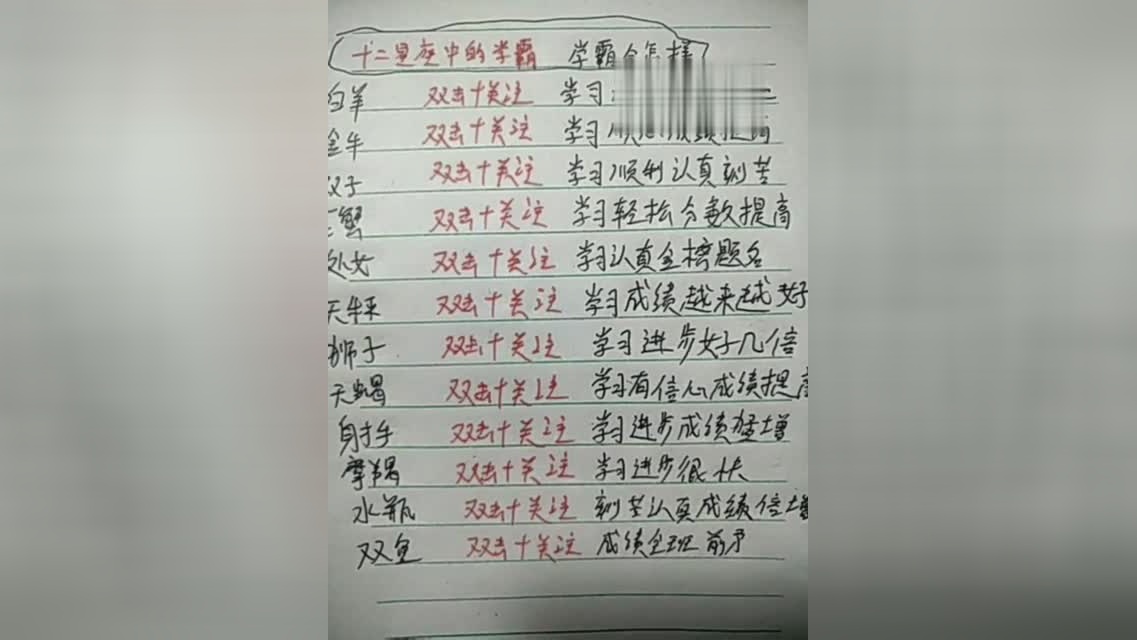 十二星座中的学霸 学霸会怎样
白羊 双击十关注 学习
金牛 双击十关注 学习顺利成绩提高
双子 双击十关注 学习顺利认真刻苦
巨蟹 双击十关注 学习轻松分数提高
处女 双击十关注 学习认真金榜题名
天秤 双击十关注 学习成绩越来越好
狮子 双击十关注 学习进步好几倍
天蝎 双击十关注 学习有信心成绩提高
射手 双击十关注 学习进步成绩猛增
摩羯 双击十关注 学习进步很快
水瓶 双击十关注 刻苦认真成绩倍增
双鱼 双击十关注 成绩全班前矛